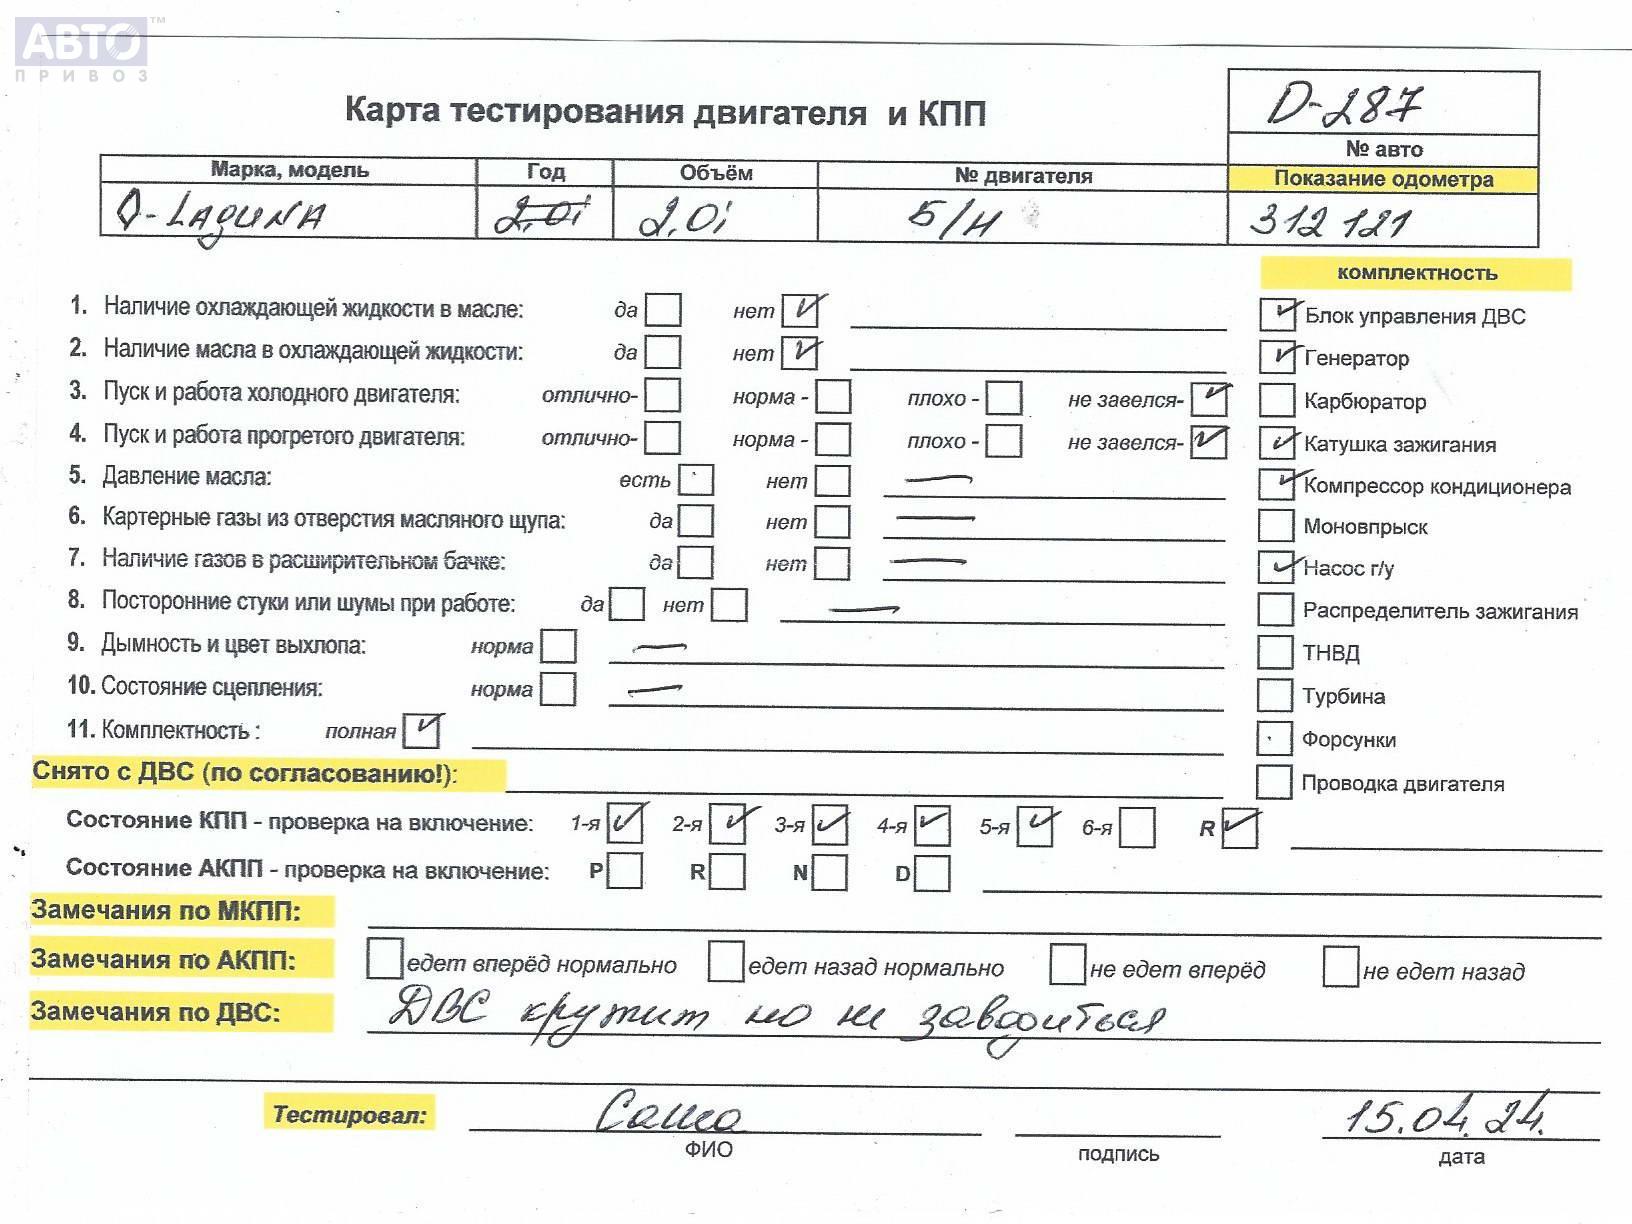 АВТО™
ПРИВОЗ
Карта тестирования двигателя и КПП
D-287
№ авто
Марка, модель Год Объём № двигателя Показание одометра
◊-LAgUNA 2,0i 2,0i Б/Н 312 121
комплектность
1. Наличие охлаждающей жидкости в масле: да нет ✓
Блок управления ДВС ✓
2. Наличие масла в охлаждающей жидкости: да нет ✓
Генератор ✓
3. Пуск и работа холодного двигателя: отлично- норма - плохо - не завелся- ✓
Карбюратор
4. Пуск и работа прогретого двигателя: отлично- норма - плохо - не завелся- ✓
Катушка зажигания ✓
5. Давление масла: есть нет —
Компрессор кондиционера ✓
6. Картерные газы из отверстия масляного щупа: да нет —
Моновпрыск
7. Наличие газов в расширительном бачке: да нет —
Насос г/у ✓
8. Посторонние стуки или шумы при работе: да нет —
Распределитель зажигания
9. Дымность и цвет выхлопа: норма —
ТНВД
10. Состояние сцепления: норма —
Турбина
11. Комплектность : полная ✓
Форсунки
Снято с ДВС (по согласованию!):
Проводка двигателя
Состояние КПП - проверка на включение: 1-я ✓ 2-я ✓ 3-я ✓ 4-я ✓ 5-я ✓ 6-я R ✓
Состояние АКПП - проверка на включение: P R N D
Замечания по МКПП:
Замечания по АКПП: едет вперёд нормально едет назад нормально не едет вперёд не едет назад
Замечания по ДВС: ДВС крутит но не заводиться
Тестировал: Саша 15.04.24.
ФИО подпись дата